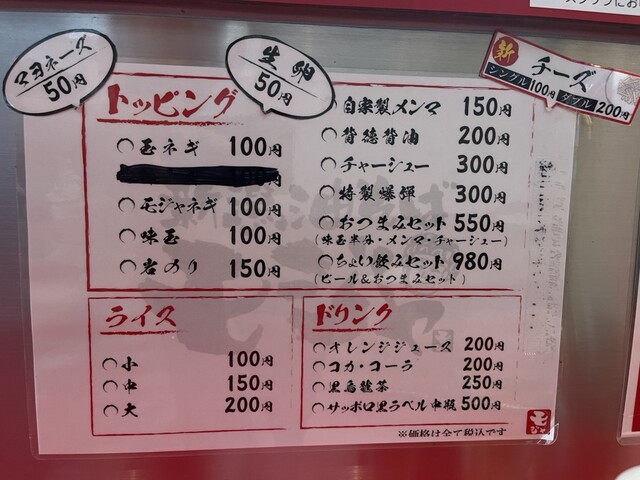 マヨネーズ
50円
生卵
50円
新
チーズ
シングル100円 ダブル200円
トッピング
〇玉ネギ 100円
〇モジャネギ 100円
〇味玉 100円
〇岩のり 150円
〇自家製メンマ 150円
〇背徳背油 200円
〇チャーシュー 300円
〇特製爆弾 300円
〇おつまみセット 550円
(味玉半分・メンマ・チャーシュー)
〇ちょい飲みセット 980円
(ビール&おつまみセット)
ライス
〇小 100円
〇中 150円
〇大 200円
ドリンク
〇オレンジジュース 200円
〇コカ・コーラ 200円
〇黒烏龍茶 250円
〇サッポロ黒ラベル中瓶 500円
※価格は全て税込です